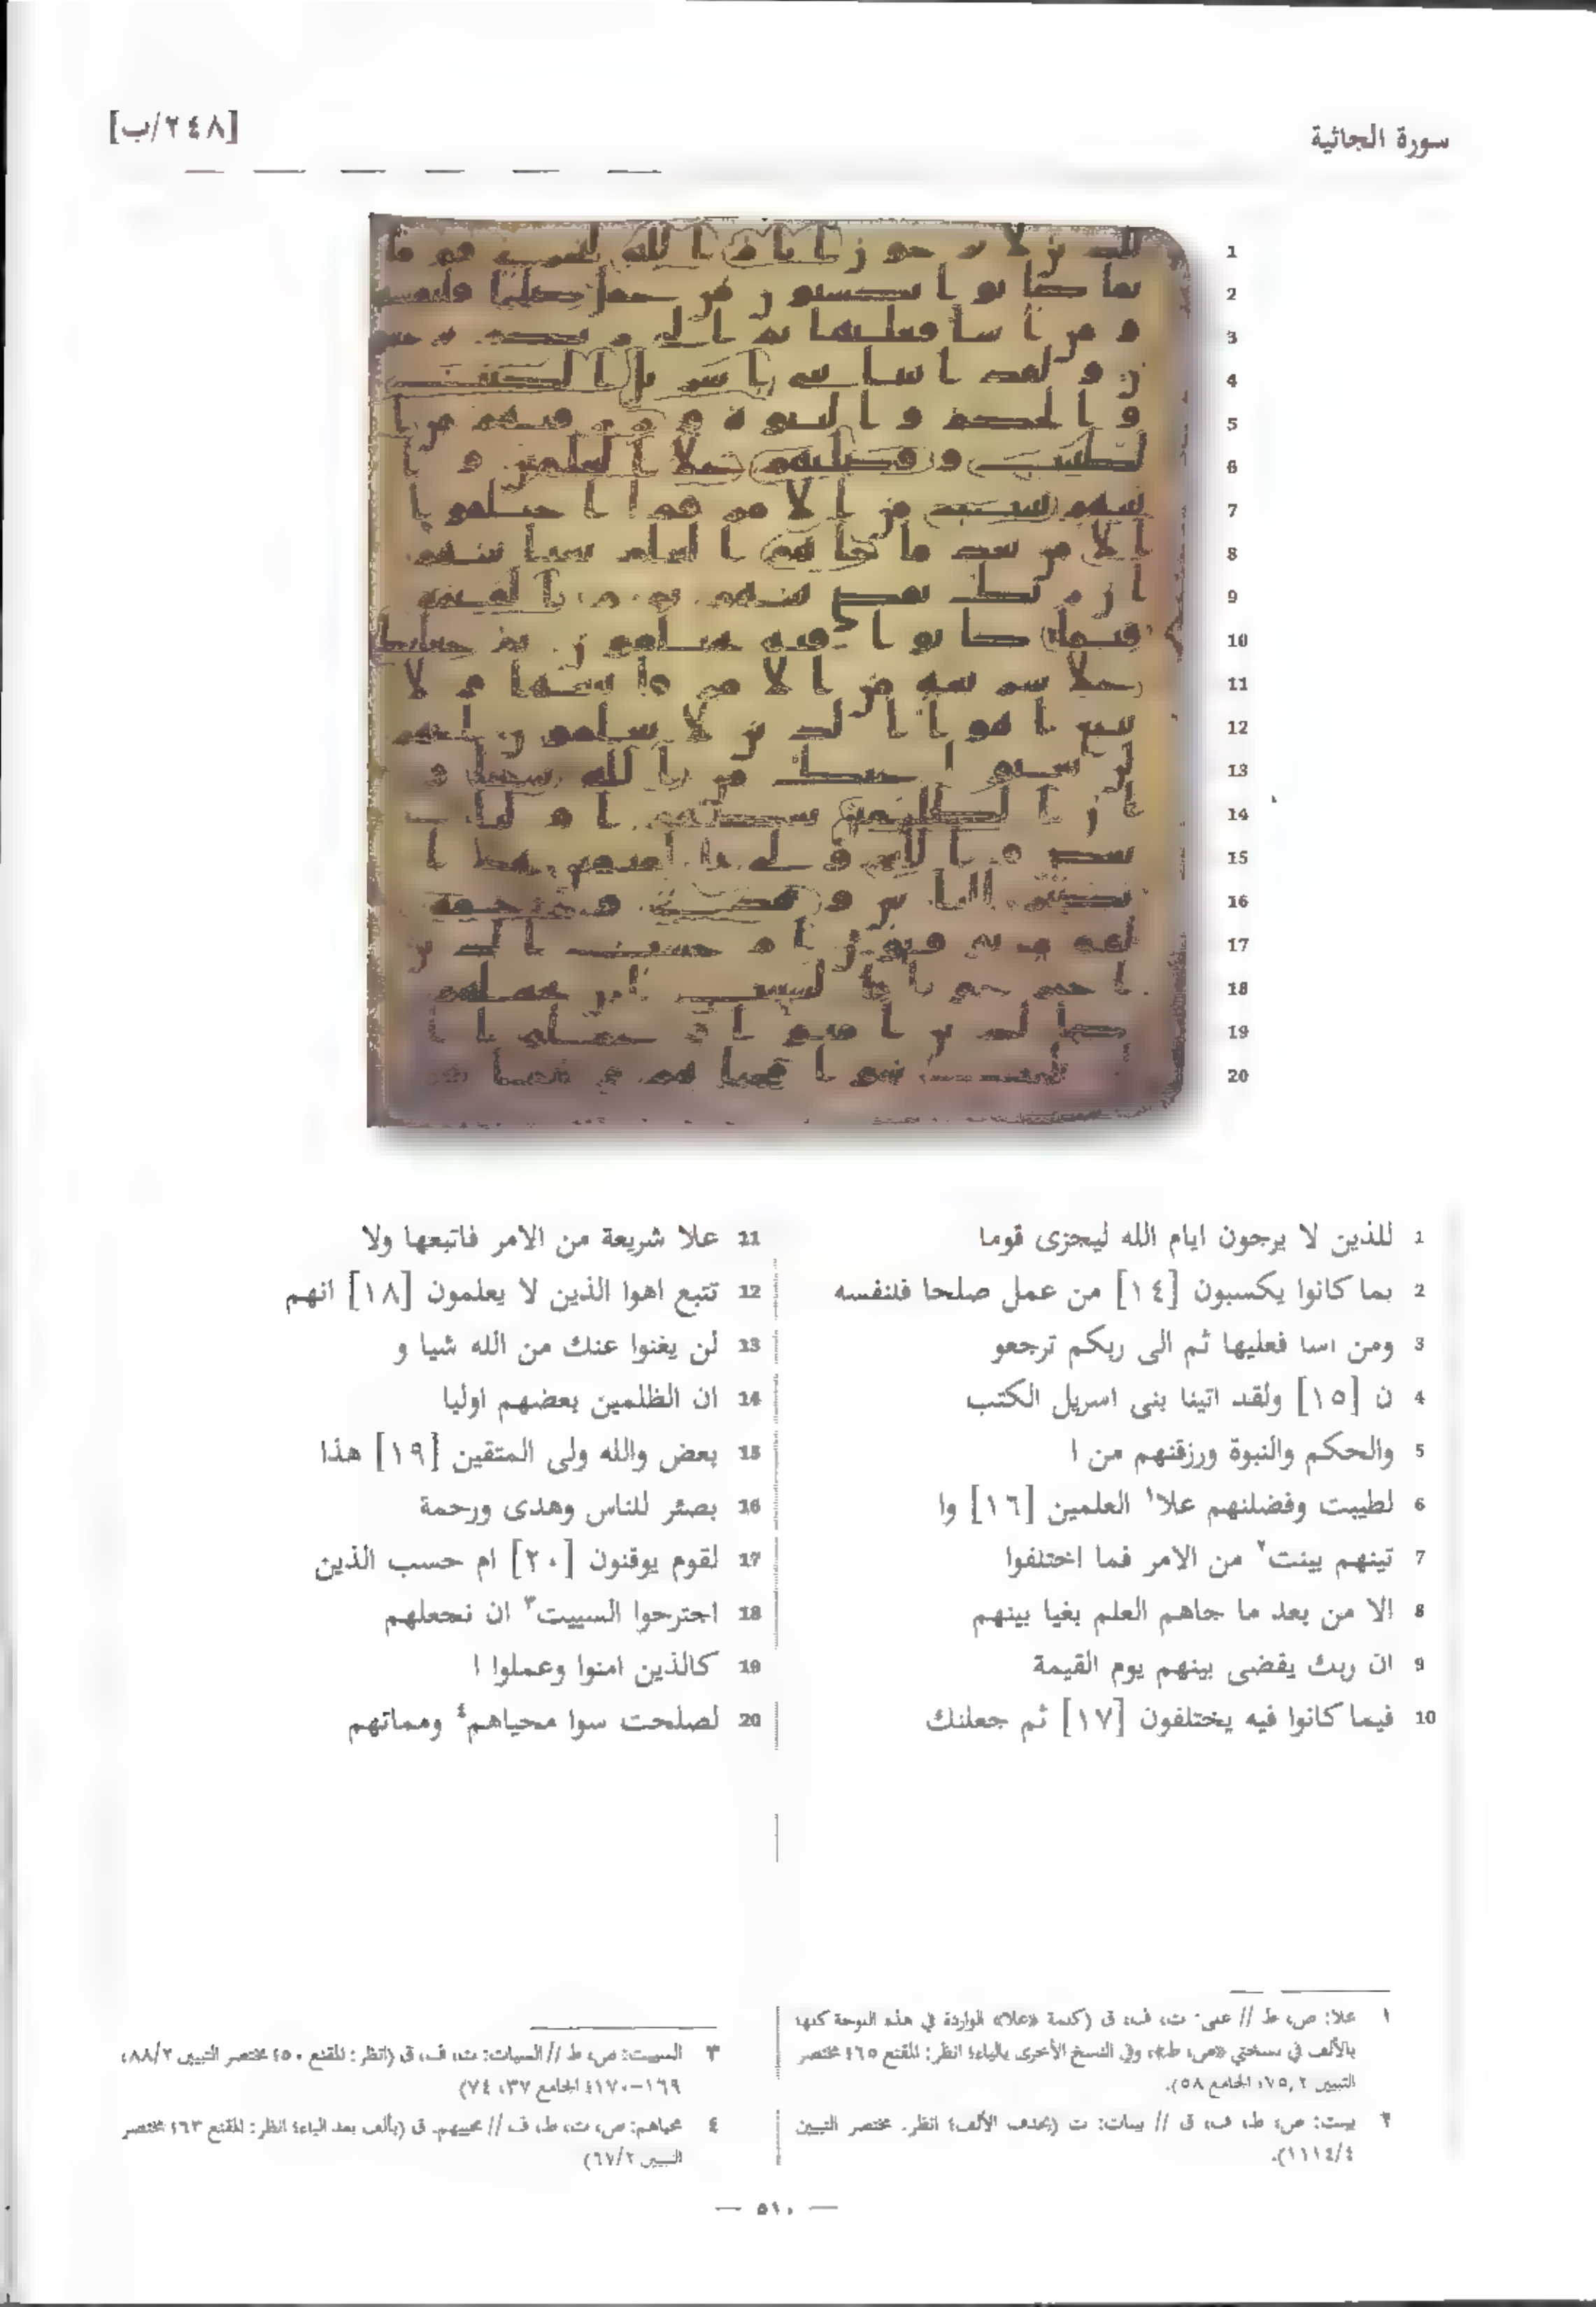 سورة الجاثية
[٢٤٨/ب]
1 للذين لا يرجون ايام الله ليجزى قوما
2 بما كانوا يكسبون [١٤] من عمل صلحا فلنفسه
3 ومن اسا فعليها ثم الى ربكم ترجعو
4 ن [١٥] ولقد اتينا بنى اسريل الكتب
5 والحكم والنبوة ورزقنهم من ا
6 لطيبت وفضلنهم علا١ العلمين [١٦] وا
7 تينهم بينت٢ من الامر فما اختلفوا
8 الا من بعد ما جاهم العلم بغيا بينهم
9 ان ربك يقضى بينهم يوم القيمة
10 فيما كانوا فيه يختلفون [١٧] ثم جعلنك
11 علا شريعة من الامر فاتبعها ولا
12 تتبع اهوا الذين لا يعلمون [١٨] انهم
13 لن يغنوا عنك من الله شيا و
14 ان الظلمين بعضهم اوليا
15 بعض والله ولى المتقين [١٩] هذا
16 بصئر للناس وهدى ورحمة
17 لقوم يوقنون [٢٠] ام حسب الذين
18 اجترحوا السييت٣ ان نجعلهم
19 كالذين امنوا وعملوا ا
20 لصلحت سوا محياهم٤ ومماتهم
١ علا: ص، ط // على: ت، ف، ق (كلمة «علا» الواردة في هذه اللوحة كلها
بالألف في نسختي «ص، ط»، وفي النسخ الأخرى بالياء؛ انظر: المقنع ٤٦٥ مختصر
التبيين ٧٥/٢، الجامع ٥٨).
٢ بينت: ص، ط، ف، ق // بينات: ت (بحذف الألف؛ انظر: مختصر التبيين
١١١٤/٤).
٣ السييت: ص، ط // السيات: ت، ف، ق (انظر: المقنع ٤٥٠ مختصر التبيين ٨٨/٢،
١٦٩-١٧٠؛ الجامع ٣٧، ٧٤)
٤ محياهم: ص، ت، ط، ف // محييهم: ق (بألف بعد الياء؛ انظر: المقنع ٤٦٣ مختصر
التبيين ٦٧/٢)
— ٥١٠ —